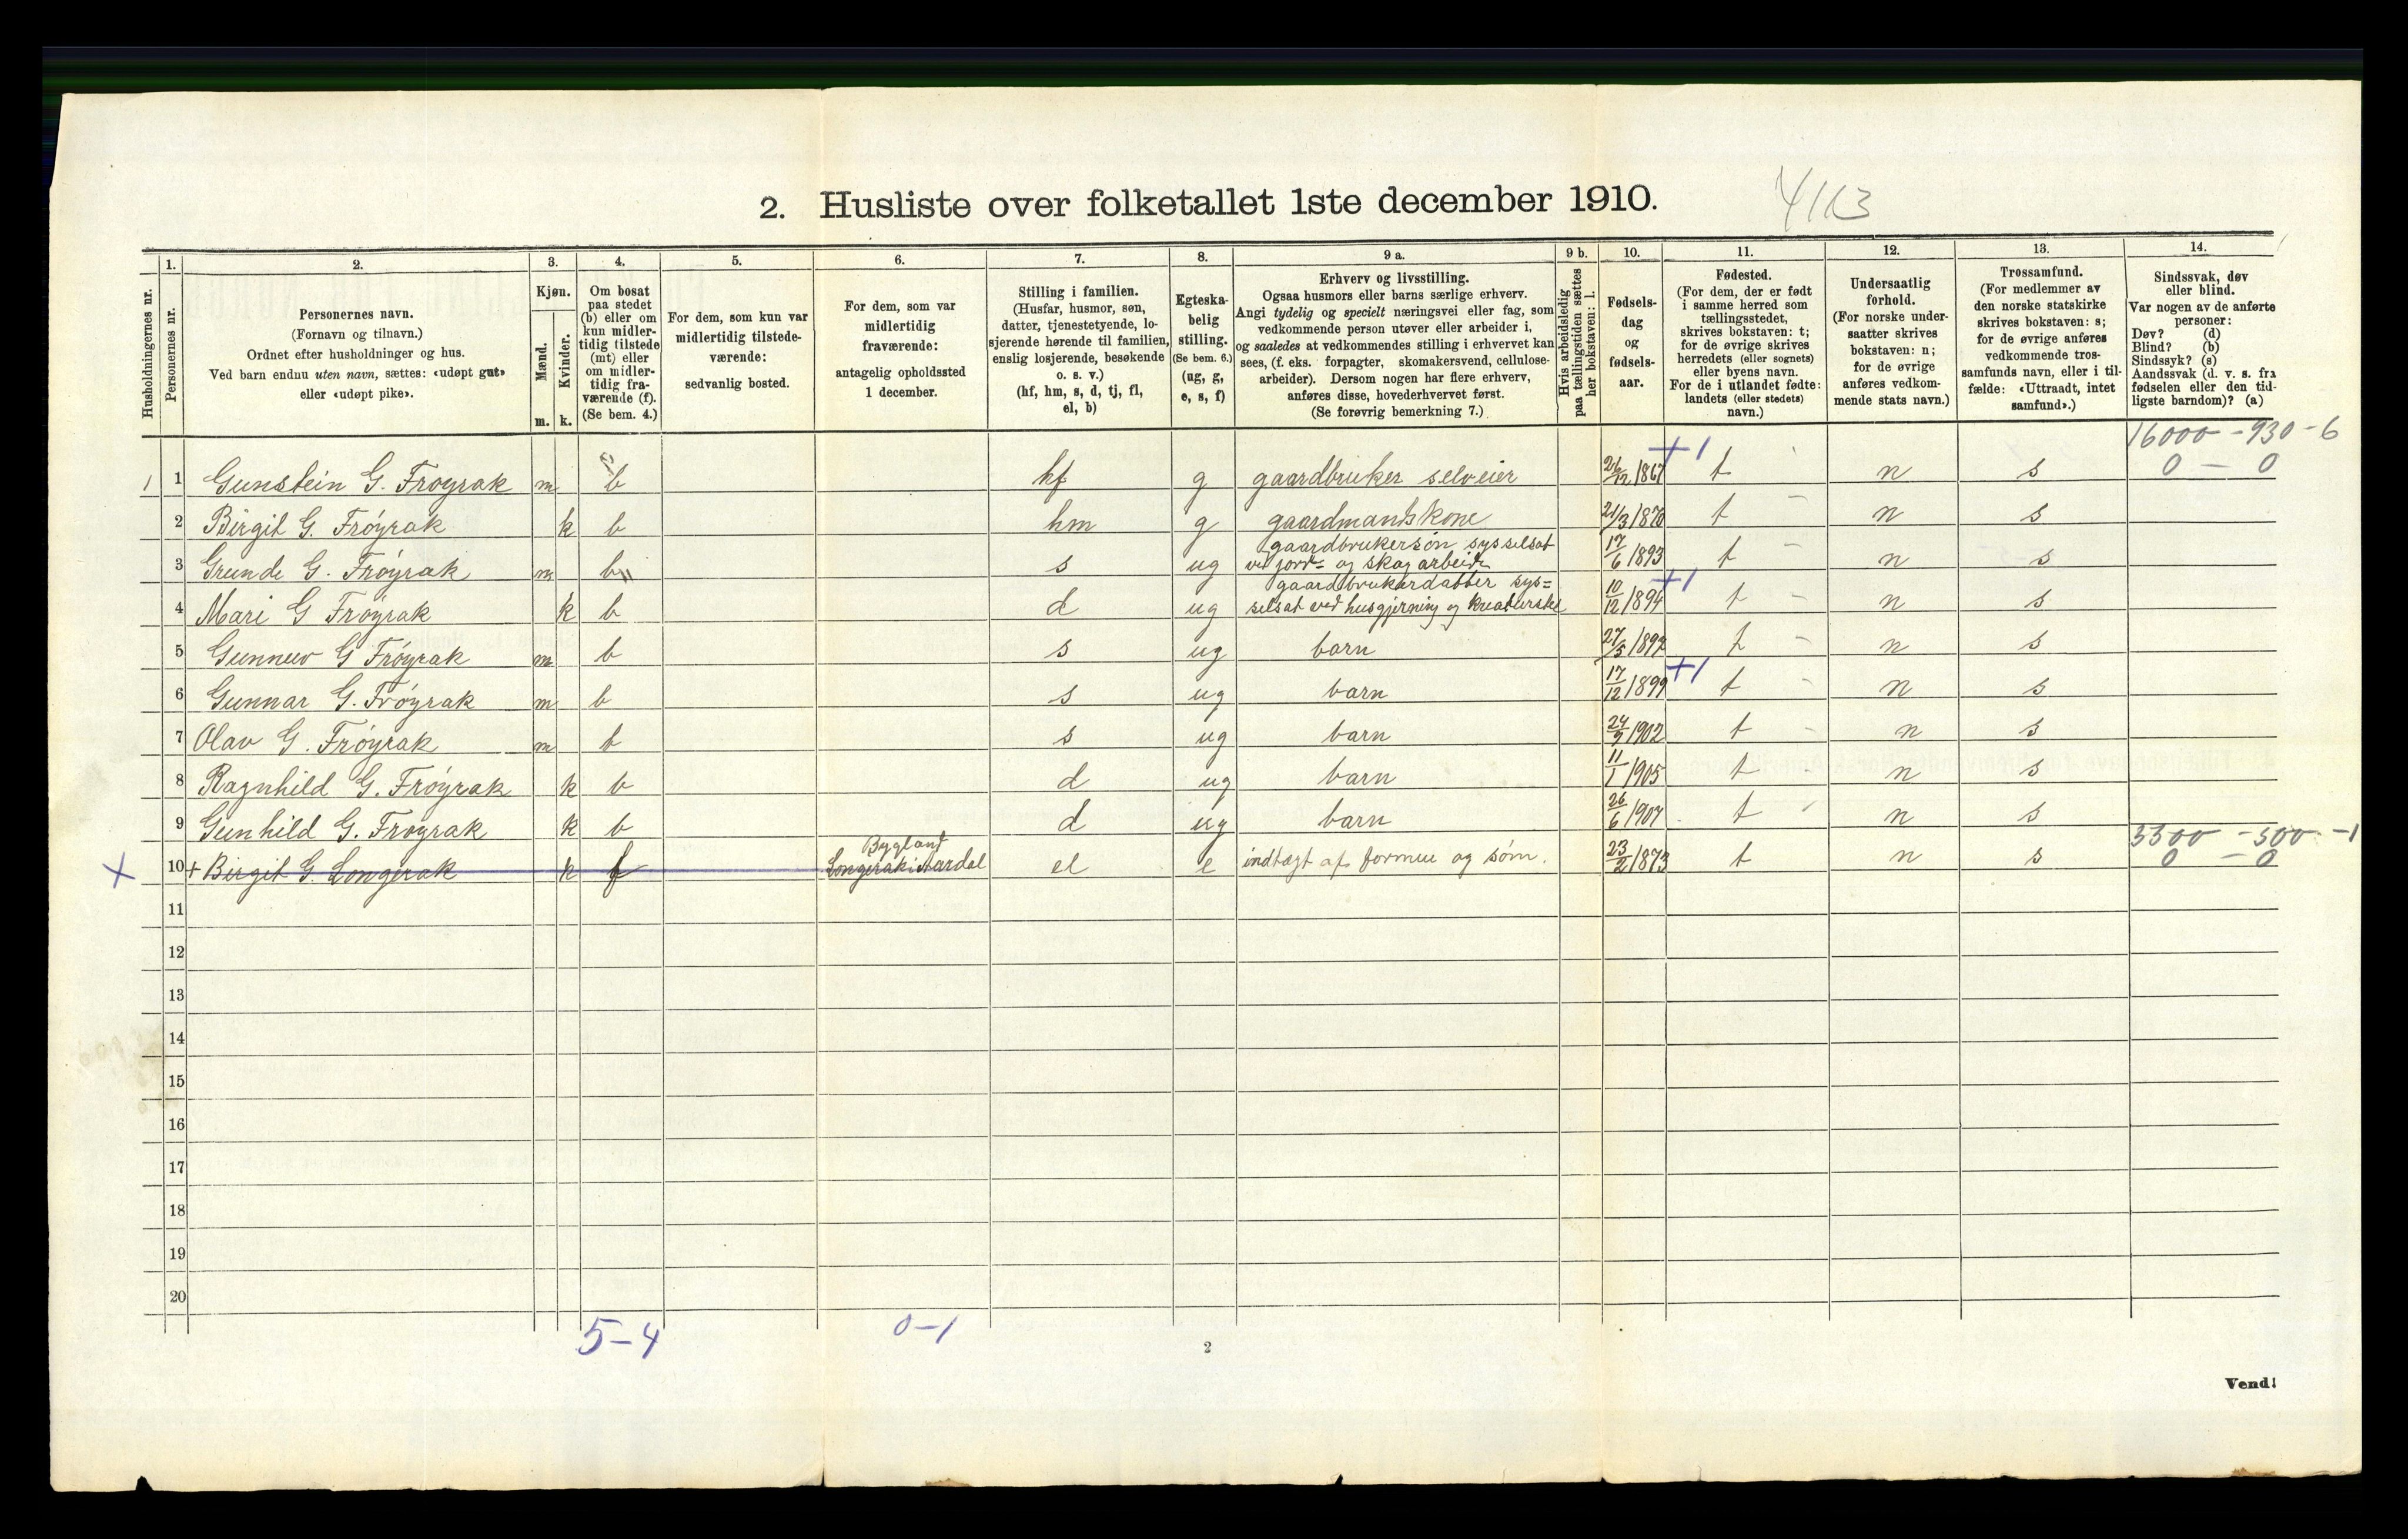 2. Husliste over folketallet 1ste december 1910.
Husholdningernes nr.
1.
Personernes nr.
2.
Personernes navn.
(Fornavn og tilnavn.)
Ordnet efter husholdninger og hus.
Ved barn endnu uten navn, sættes: «udøpt gut»
eller «udøpt pike».
3.
Kjøn.
Mænd.
Kvinder.
m. k.
4.
Om bosat
paa stedet
(b) eller om
kun midler-
tidig tilstede
(mt) eller
om midler-
tidig fra-
værende (f).
(Se bem. 4.)
5.
For dem, som kun var
midlertidig tilstede-
værende:
sedvanlig bosted.
6.
For dem, som var
midlertidig
fraværende:
antagelig opholdssted
1 december.
7.
Stilling i familien.
(Husfar, husmor, søn,
datter, tjenestetyende, lo-
sjerende hørende til familien,
enslig losjerende, besøkende
o. s. v.)
(hf, hm, s, d, tj, fl,
el, b)
8.
Egteska-
belig
stilling.
(Se bem. 6.)
(ug, g,
e, s, f)
9 a.
Erhverv og livsstilling.
Ogsaa husmors eller barns særlige erhverv.
Angi tydelig og specielt næringsvei eller fag, som
vedkommende person utøver eller arbeider i,
og saaledes at vedkommendes stilling i erhvervet kan
sees, (f. eks. forpagter, skomakersvend, cellulose-
arbeider). Dersom nogen har flere erhverv,
anføres disse, hovederhvervet først.
(Se forøvrig bemerkning 7.)
9 b.
Hvis arbeidsledig
paa tællingstiden sættes
her bokstaven: l.
10.
Fødsels-
dag
og
fødsels-
aar.
11.
Fødested.
(For dem, der er født
i samme herred som
tællingsstedet,
skrives bokstaven: t;
for de øvrige skrives
herredets (eller sognets)
eller byens navn.
For de i utlandet fødte:
landets (eller stedets)
navn.)
12.
Undersaatlig
forhold.
(For norske under-
saatter skrives
bokstaven: n;
for de øvrige
anføres vedkom-
mende stats navn.)
13.
Trossamfund.
(For medlemmer av
den norske statskirke
skrives bokstaven: s;
for de øvrige anføres
vedkommende tros-
samfunds navn, eller i til-
fælde: «Uttraadt, intet
samfund».)
14.
Sindssvak, døv
eller blind.
Var nogen av de anførte
personer:
Døv? (d)
Blind? (b)
Sindssyk? (s)
Aandssvak (d. v. s. fra
fødselen eller den tid-
ligste barndom)? (a)
16000 - 930 - 6
1 1 Gunstein G. Frøyrak m b hf g gaardbruker selveier 26/12 1867 +1 t n s 0 - 0
2 Birgit G. Frøyrak k b hm g gaardmandskone 21/3 1870 t n s
3 Grunde G. Frøyrak m b s ug gaardbrukersøn sysselsat
ved jord- og skogarbeide 17/6 1893 t n s
4 Mari G Frøyrak k b d ug gaardbrukerdatter sys=
selsat ved husgjerning og kreaturstel 10/12 1894 +1 t n s
5 Gunnuv G Frøyrak m b s ug barn 27/5 1897 t n s
6 Gunnar G. Frøyrak m b s ug barn 17/12 1899 +1 t n s
7 Olav G. Frøyrak m b s ug barn 24/9 1902 t n s
8 Ragnhild G. Frøyrak k b d ug barn 11/1 1905 t n s
9 Gunhild G. Frøyrak k b d ug barn 26/6 1907 t n s
Bygland 3300 - 500 - 1
x 10 + Birgit G. Longerak k f Longerak i Aardal el e indtægt af formue og søm. 23/2 1873 t n s 0 - 0
11
12
13
14
15
16
17
18
19
20
5-4 0-1
2
Vend!